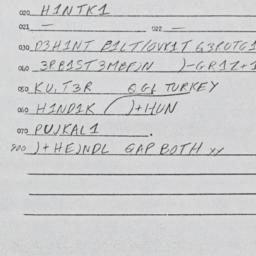 020 H1NTK1
021 — 022 —
030 D3H1NT B1LT/OVK1T G3ROTG1
040 3PB1ST3MBF)N )-GR1Z+1
050 KU,T3R GGL TURKEY
060 H1ND1K )+HUN
070 PU)KAL1 .
900 )+HE)NDL GAP BOTH